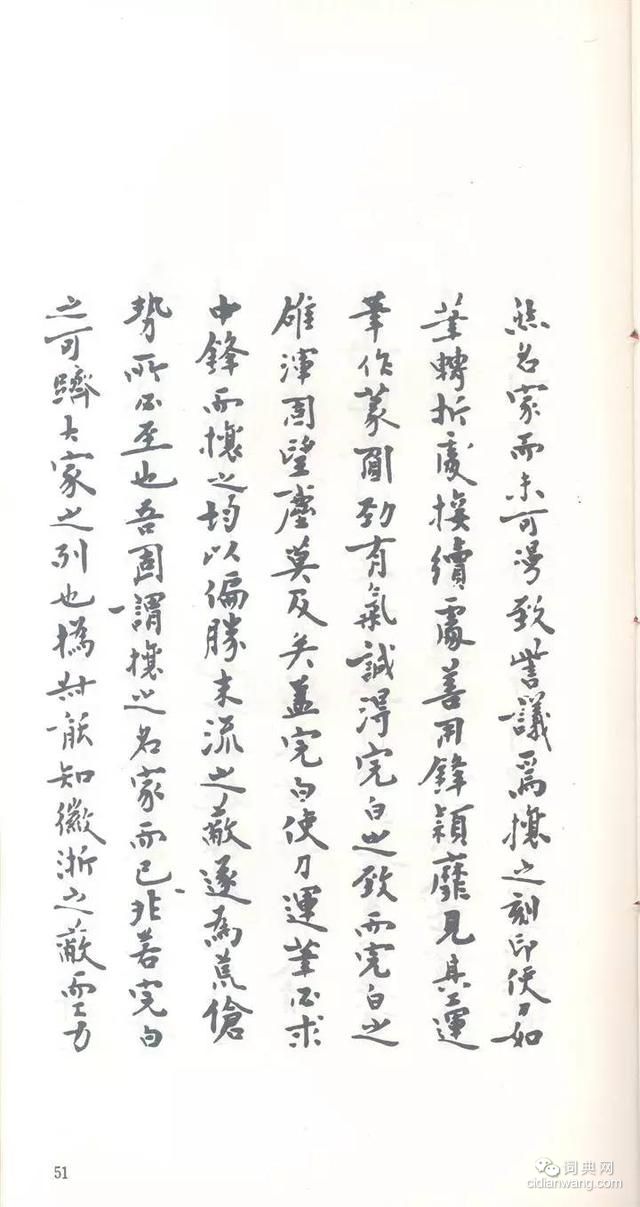 名家而未可漫致訾議爲攘之刻印使刀如
筆轉折處接續處善用鋒穎靡見其工運
筆作篆圓勁有氣誠得完白之致而完白之
雄渾固望塵莫及矣蓋完白使刀運筆必求
中鋒而攘之均以偏勝末流之蔽遂為荒傖
勢所必至也吾固謂攘之名家而已非若完白
之可躋大家之列也撝叔能知徽浙之蔽而力
51
词典网
cidianwang.com